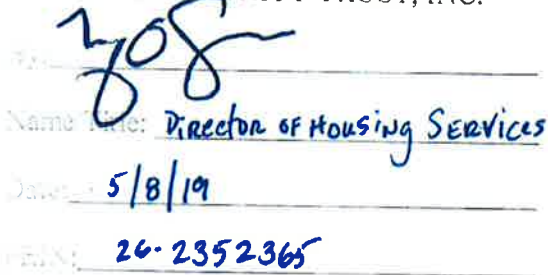 TRUST, INC.
Name Title: Director of Housing Services
Date: 5/8/19
26-2352365